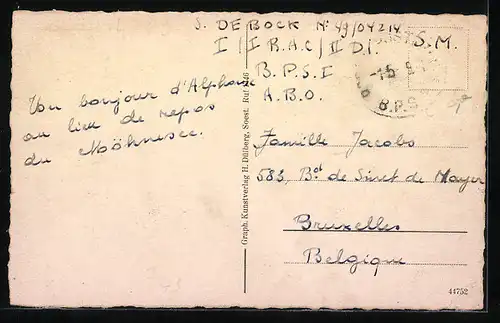 S. DE BOCK Nº 49/04214
I / I R.A.C / II D.I. S.M.
B.P.S. I
A.B.O.
B.P.S
Un bonjour d'Alphonse
au lieu de repos
du Möhnesee.
Graph. Kunstverlag H. Dülberg, Soest. Ruf
Famille Jacobs
583, Bd de Smet de Nayer
Bruxelles
Belgique
44752